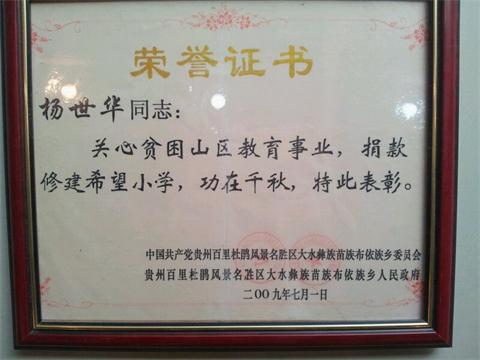 荣誉证书
杨世华同志：
关心贫困山区教育事业，捐款
修建希望小学，功在千秋，特此表彰。
中国共产党贵州百里杜鹃风景名胜区大水彝族苗族布依族乡委员会
贵州百里杜鹃风景名胜区大水彝族苗族布依族乡人民政府
二00九年七月一日